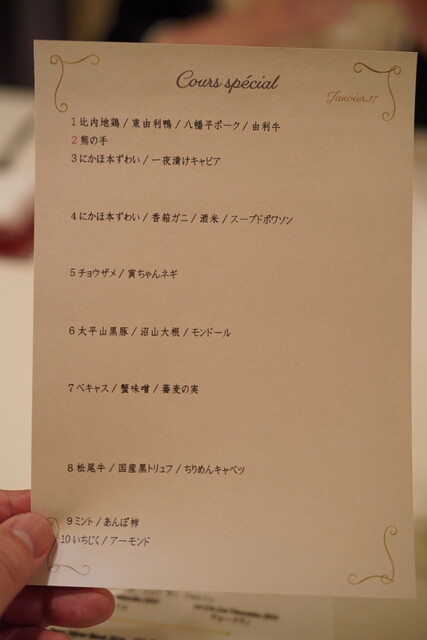 Cours spécial
Janvier.17
1 比内地鶏 / 東由利鴨 / 八幡平ポーク / 由利牛
2 熊の手
3 にかほ本ずわい / 一夜漬けキャビア
4 にかほ本ずわい / 香箱ガニ / 酒米 / スープドポワソン
5 チョウザメ / 寅ちゃんネギ
6 太平山黒豚 / 沼山大根 / モンドール
7 ベキャス / 蟹味噌 / 蕎麦の実
8 松尾牛 / 国産黒トリュフ / ちりめんキャベツ
9 ミント / あんぽ柿
10 いちじく / アーモンド